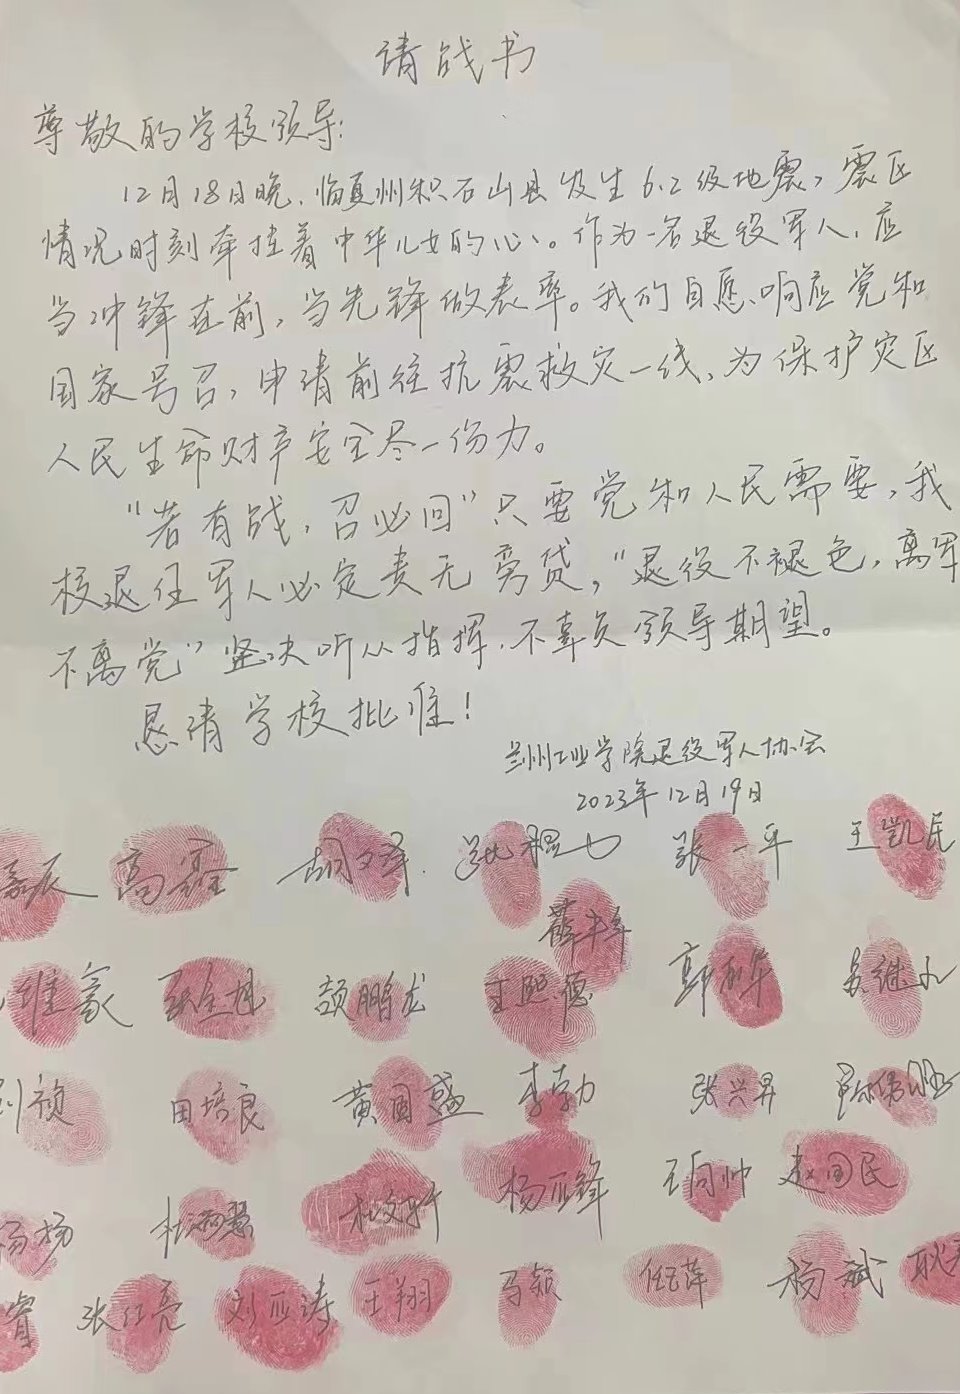 请战书
尊敬的学校领导:
12月18日晚,临夏州积石山县发生6.2级地震,震区
情况时刻牵挂着中华儿女的心。作为一名退役军人,应
当冲锋在前,当先锋做表率。我们自愿响应党和
国家号召,申请前往抗震救灾一线、为保护灾区
人民生命财产安全尽一份力。
"若有战,召必回"只要党和人民需要,我
校退役军人必定责无旁贷,"退役不褪色,离军
不离党"坚决听从指挥,不辜负领导期望。
恳请学校批准!
兰州工业学院退役军人协会
2023年12月19日
高鑫 张一平 王凯民
维豪 颉鹏龙 王熙德
田培良 黄国盛 李勃 张兴昇
杨亚锋 王向帅 赵国民
张红亮 刘亚涛 王翔 马颖 杨斌